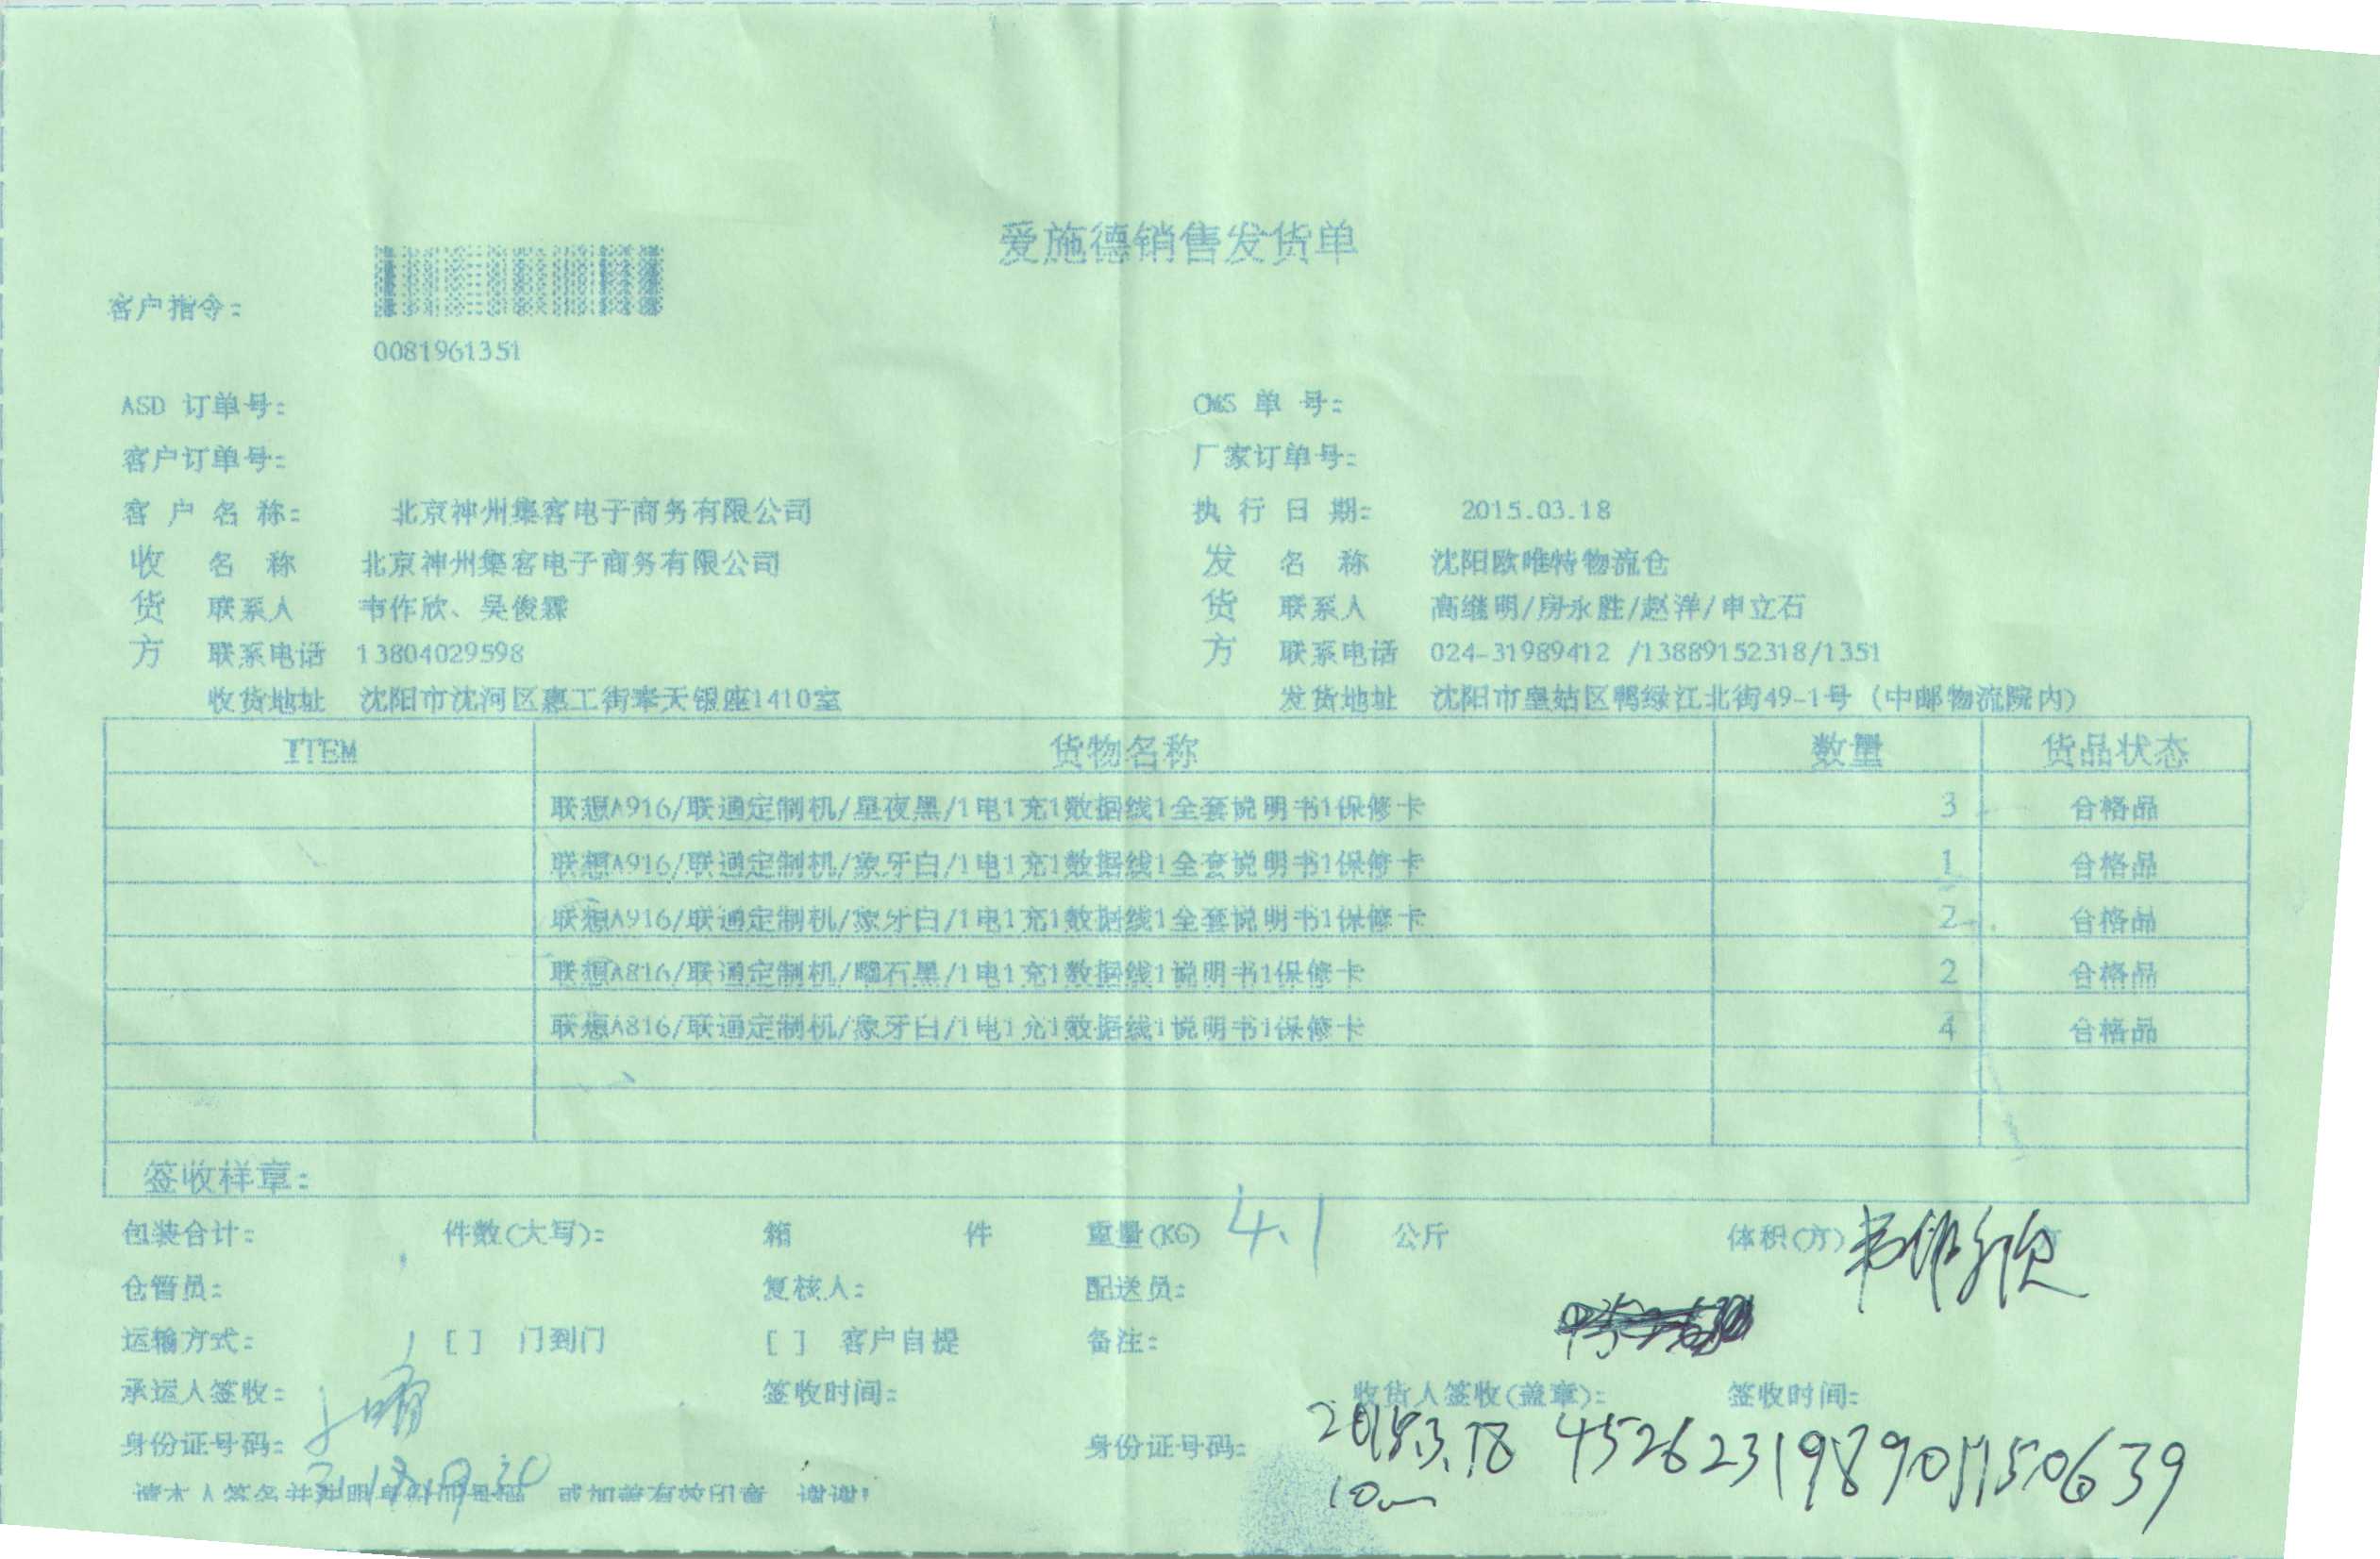 爱施德销售发货单
客户指令:
0081961351
ASD 订单号: OMS 单 号:
客户订单号: 厂家订单号:
客 户 名 称: 北京神州集客电子商务有限公司 执 行 日 期: 2015.03.18
收 名 称 北京神州集客电子商务有限公司 发 名 称 沈阳欧唯特物流仓
货 联系人 韦作欣、吴俊霖 货 联系人 高继明/房永胜/赵洋/申立石
方 联系电话 13804029598 方 联系电话 024-31989412 /13889152318/1351
收货地址 沈阳市沈河区惠工街奉天银座1410室 发货地址 沈阳市皇姑区鸭绿江北街49-1号 (中邮物流院内)
ITEM 货物名称 数量 货品状态
联想A916/联通定制机/星夜黑/1电1充1数据线1全套说明书1保修卡 3 合格品
联想A916/联通定制机/象牙白/1电1充1数据线1全套说明书1保修卡 1 合格品
联想A916/联通定制机/象牙白/1电1充1数据线1全套说明书1保修卡 2 合格品
联想A816/联通定制机/曜石黑/1电1充1数据线1说明书1保修卡 2 合格品
联想A816/联通定制机/象牙白/1电1充1数据线1说明书1保修卡 4 合格品
签收样章:
包装合计: 件数(大写): 箱 件 重量(KG) 4.1 公斤 体积(方) 韦作欣
仓管员: 复核人: 配送员:
运输方式: [ ] 门到门 [ ] 客户自提 备注:
承运人签收: 签收时间: 收货人签收(盖章): 签收时间:
身份证号码: 身份证号码: 2015.3.18
请本人签名并注明身份证号码 或加盖有效印章 谢谢!